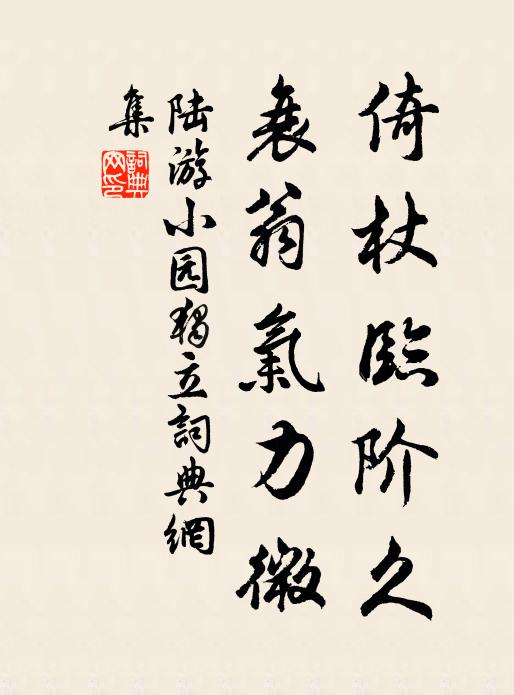 倚杖臨阶久
衰翁氣力微
陆游小园獨立詞典網
集
詞典
网印